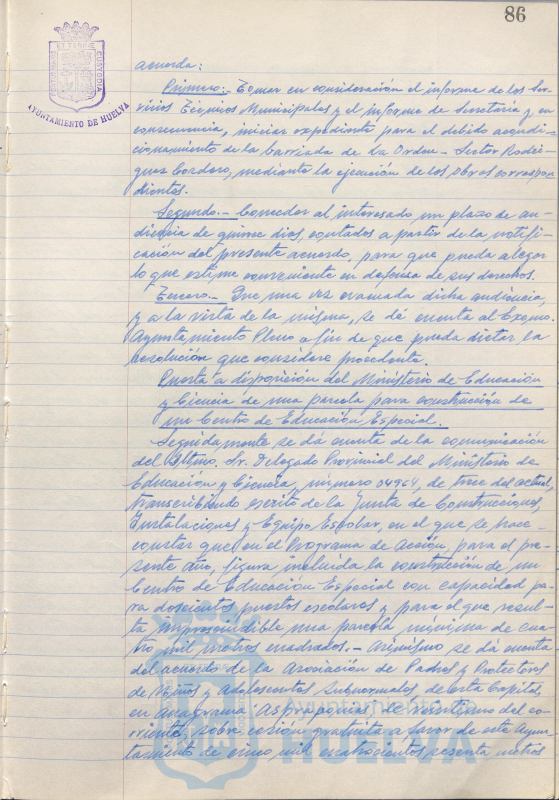 86
AYUNTAMIENTO DE HUELVA
acuerda:
Primero.- Tomar en consideración el informe de los Ser-
vicios Técnicos Municipales y el informe de Secretaría y en
consecuencia, iniciar expediente para el debido acondi-
cionamiento de la barriada de La Orden - Sector Rodrí-
guez Cordero, mediante la ejecución de las obras correspon
dientes.
Segundo.- Conceder al interesado un plazo de au-
diencia de quince días, contados a partir de la notifi-
cación del presente acuerdo, para que pueda alegar
lo que estime conveniente en defensa de sus derechos.
Tercero.- Que una vez evacuada dicha audiencia,
y a la vista de la misma, se dé cuenta al Excmo.
Ayuntamiento Pleno a fin de que pueda dictar la
resolución que considere procedente.
Puesta a disposición del Ministerio de Educación
y Ciencia de una parcela para construcción de
un Centro de Educación Especial.
Seguidamente se dá cuenta de la comunicación
del Iltmo. Sr. Delegado Provincial del Ministerio de
Educación y Ciencia, número 04964, de trece del actual,
transcribiendo escrito de la Junta de Construcciones,
Instalaciones y Equipo Escolar, en el que se hace
constar que en el Programa de Acción para el pre-
sente año, figura incluída la construcción de un
Centro de Educación Especial con capacidad pa-
ra doscientos puestos escolares y para el que resul-
ta imprescindible una parcela mínima de cua-
tro mil metros cuadrados.- Asimismo se dá cuenta
del acuerdo de la Asociación de Padres y Protectores
de Niños y Adolescentes Subnormales de esta Capital,
en Anagrama "Asprapomas", de veintiuno del co-
rriente, sobre cesión gratuita a favor de este Ayun-
tamiento de cinco mil cuatrocientos sesenta metros
Ayuntamiento de
HUELVA